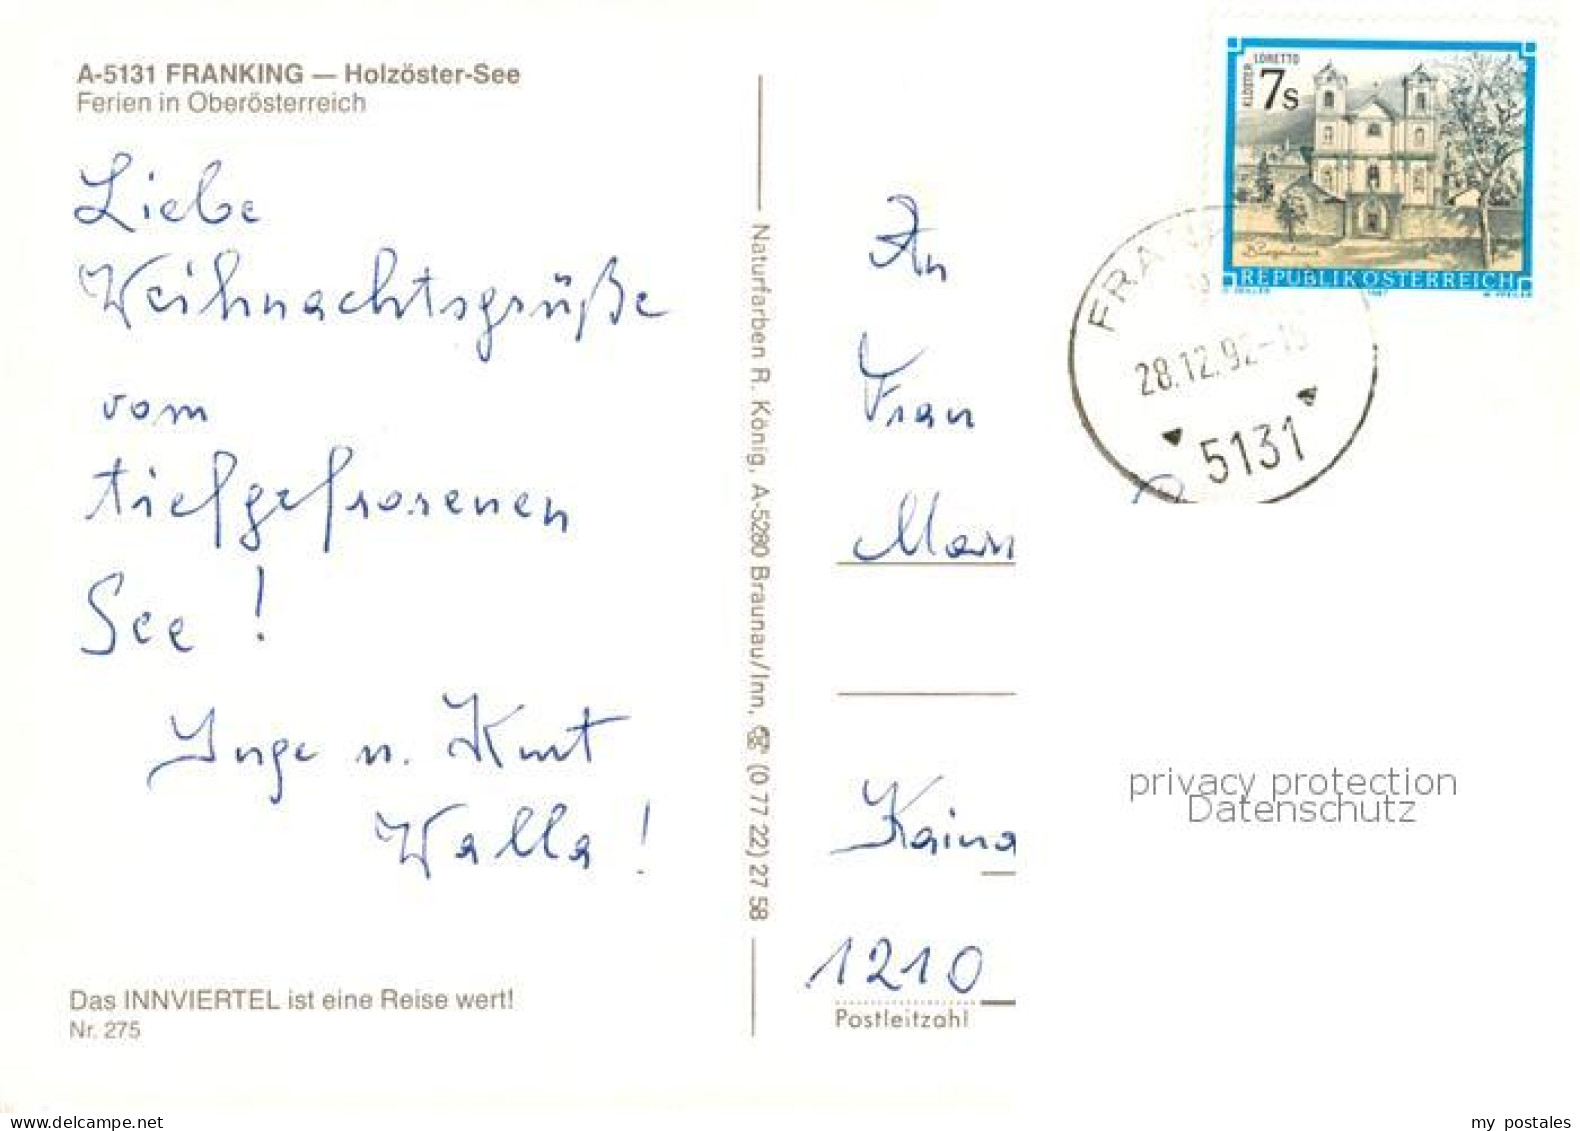 A-5131 FRANKING — Holzöster-See
Ferien in Oberösterreich
Liebe
Weihnachtsgrüße
vom
tiefgefrorenen
See !
Inge u. Kurt
Walla !
Das INNVIERTEL ist eine Reise wert!
Nr. 275
Naturfarben R. König, A-5280 Braunau/Inn, ☏ (0 77 22) 27 58
KLOSTER LORETTO
7s
REPUBLIK ÖSTERREICH
1987
28.12.92-
5131
An
Frau
Kaina
1210
Postleitzahl
privacy protection
Datenschutz
my postales
www.delcampe.net